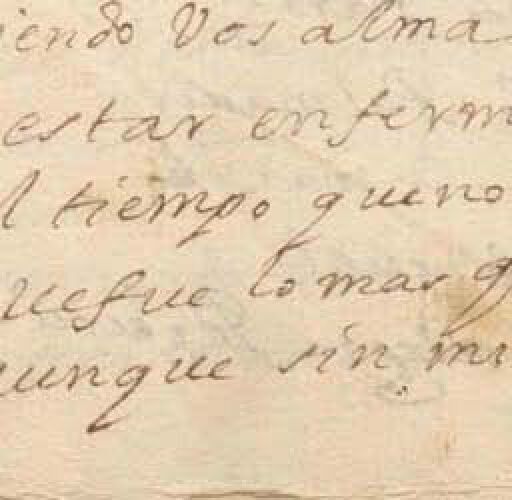 iendo Vos alma
estar enferm
l tiempo queno
uefue lo mas q
unque sin mi